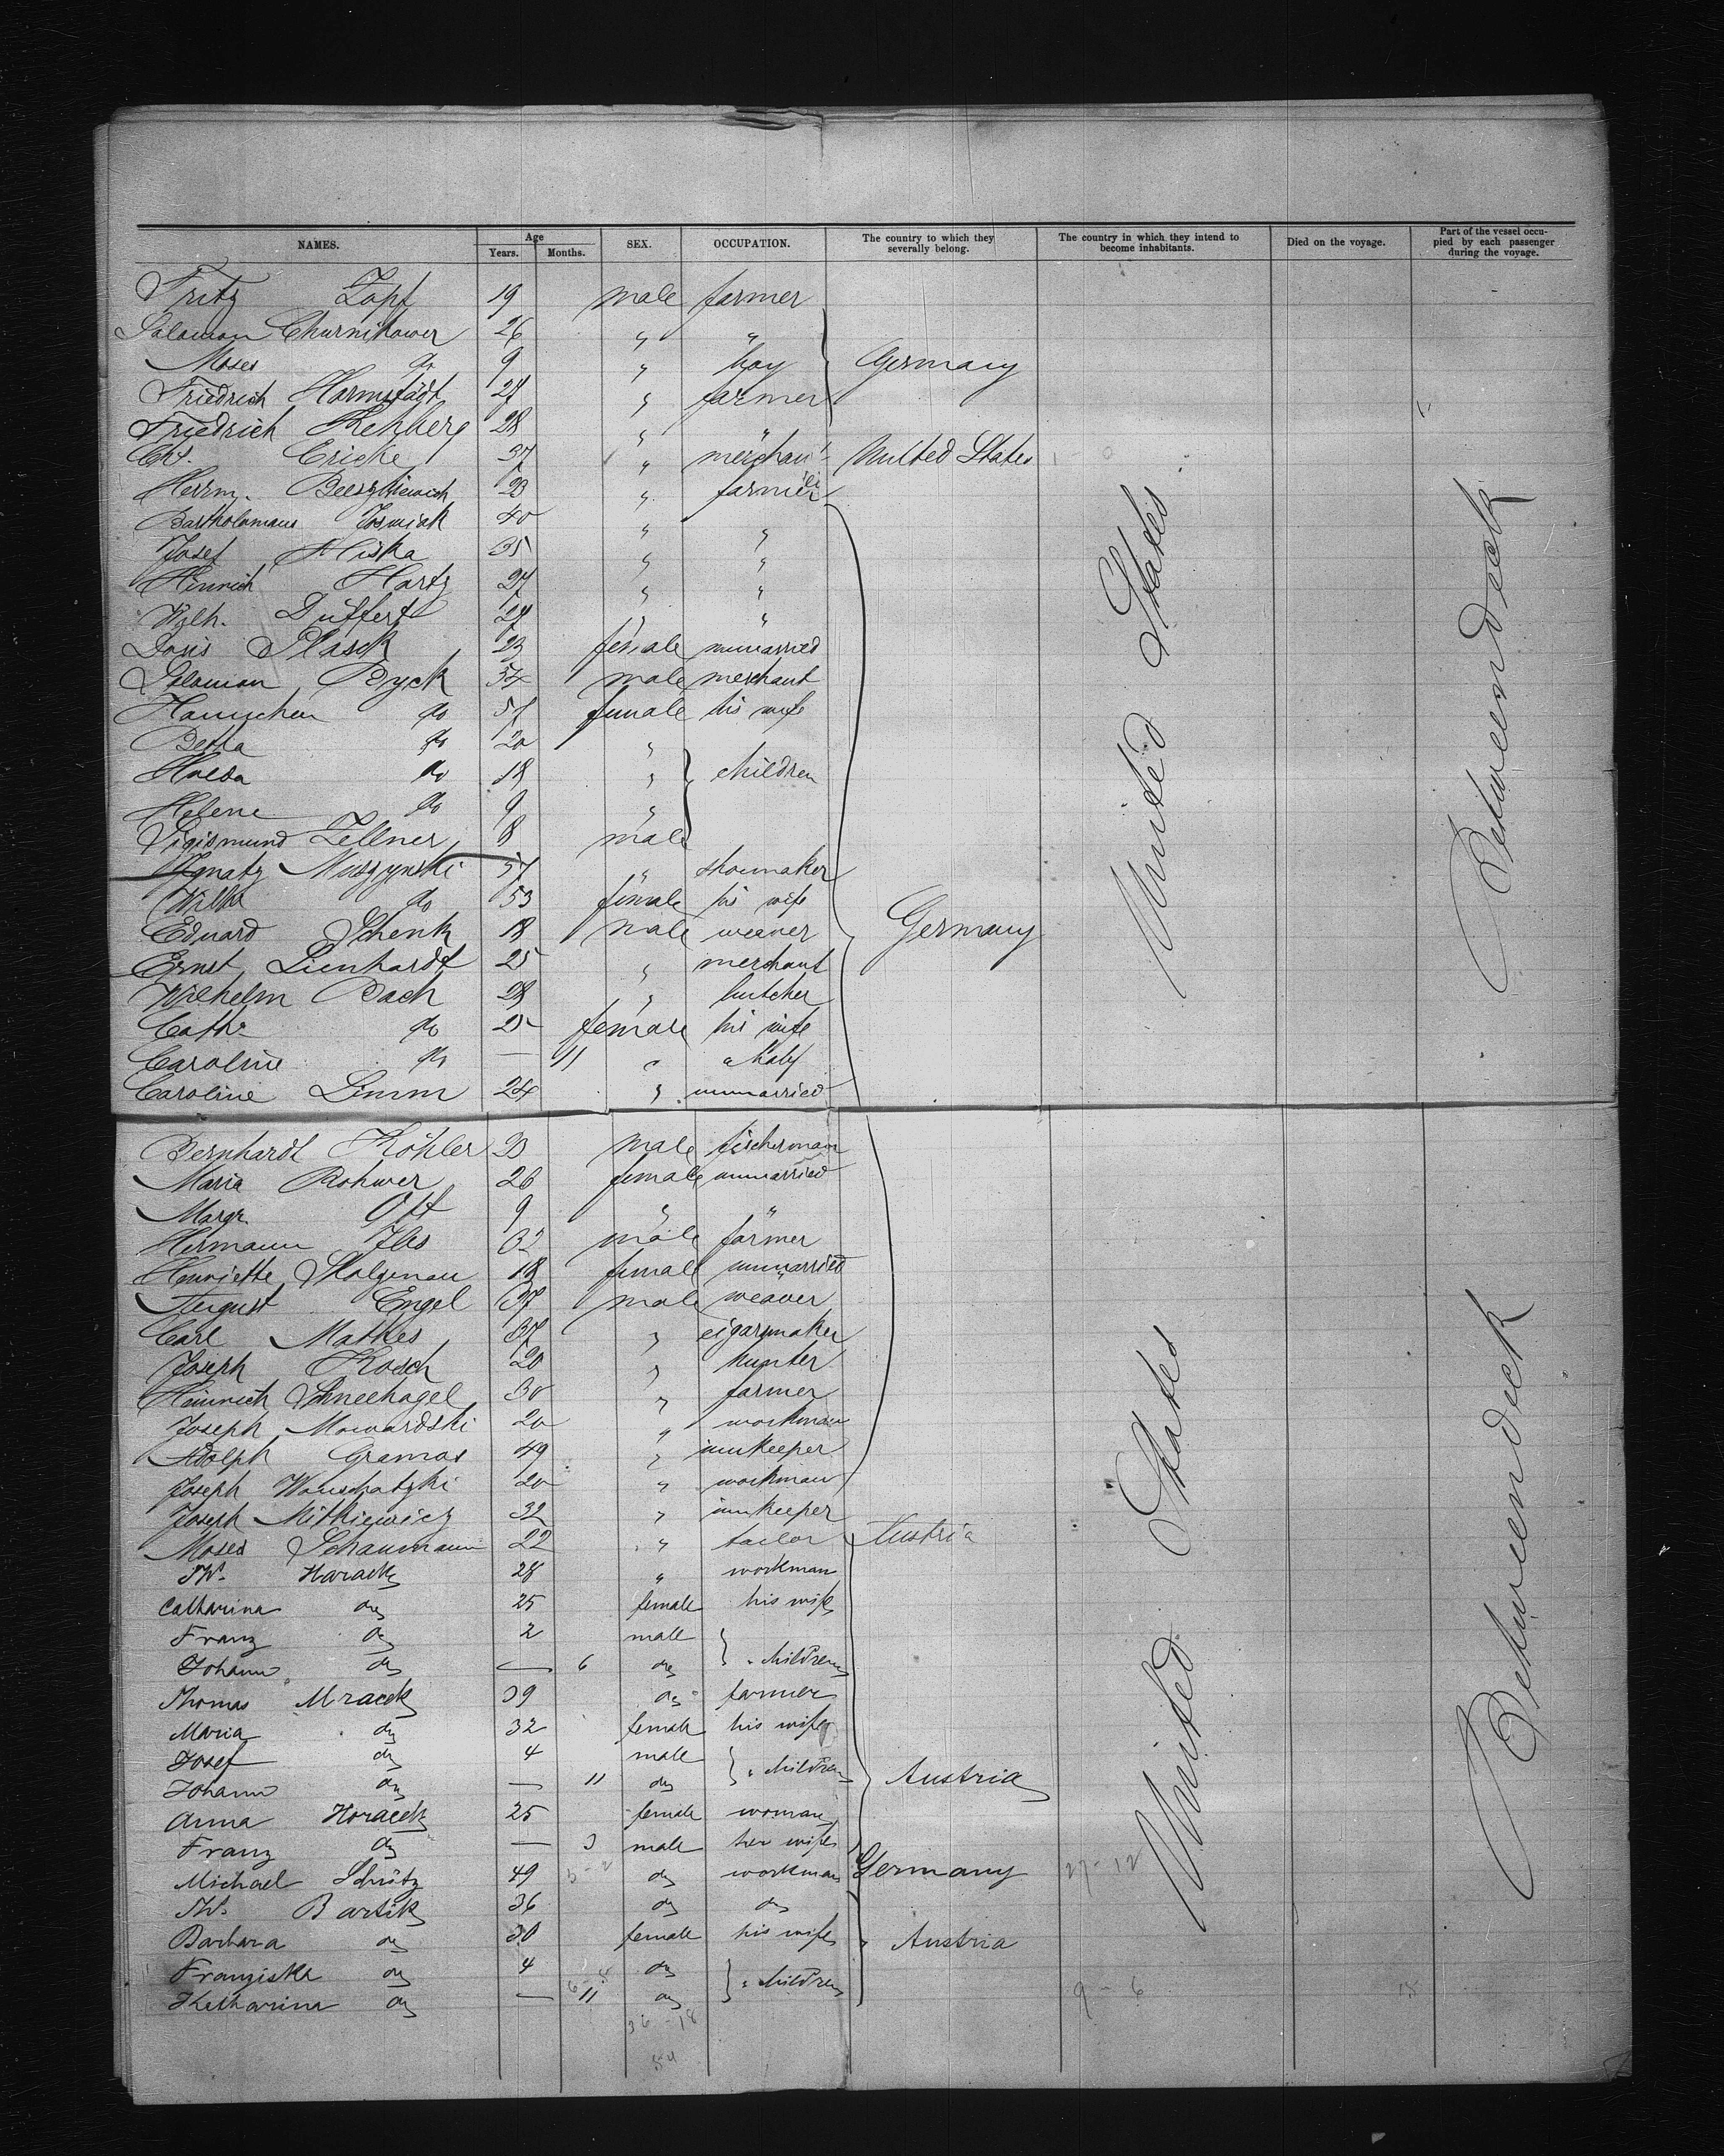 NAMES. Age Years. Months. SEX. OCCUPATION. The country to which they severally belong. The country in which they intend to become inhabitants. Died on the voyage. Part of the vessel occupied by each passenger during the voyage.
Fritz Zopf 19 male farmer
Salomon Churnikower 26 " "
Moses do 9 " boy Germany
Friedrich Harmstädt 27 " farmer
Friedrich Rehberg 28 " "
Chr. Ericke 37 " merchant United States
Herrm. 23 " farmer
Bartholomaus Josmiak 40 " "
Josef Fliska 35 " "
Hinrich Hartz 27 " "
Wilh. Düffert 28 " "
Doris Plasch 23 female unmarried
Salomon Ryck 54 male merchant
Hannchen do 57 female his wife
Betha do 20 "
Hulda do 18 " children
Helene do 9 "
Sigismund Zellner 8 male
Ignatz Muszynski 57 " shoumaker
Wilh. do 53 female his wife
Eduard Schenk 18 male weaver Germany
Ernst Lienhardt 25 " merchant
Wilhelm Bach 28 " butcher
Cathr. do 25 female his wife
Caroline do — 11 " a baby
Caroline Limm 24 " unmarried
Bernhardt Köhler 23 male fischerman
Maria Rohwer 26 female unmarried
Margr. Ott 9 " "
Hermann Iles 32 male farmer
Henriette Stolgenau 18 female unmarried
August Engel 37 male weaver
Carl Mathes 37 " cigarmaker
Joseph Kosch 20 " hunter
Heinrich Schneehagel 30 " farmer
Joseph Mowardski 20 " workman
Adolph Gramas 49 " innkeeper
Joseph Wonschatzki 20 " workman
Joseph Mitkiewicz 32 " innkeeper
Moses Schaumann 22 " tailor Austria
Th. Haracek 28 " workman
Catharina do 25 female his wife
Franz do 2 male
Johann do — 6 do children
Thomas Mracek 39 do farmer
Maria do 32 female his wife
Josef do 4 male children
Johann do — 11 do Austria
Anna Horacek 25 female woman
Franz do — 3 male her wife
Michael Schütz 49 do workman Germany 27-12
Th. Bartik 36 do do
Barbara do 30 female his wife Austria
Franziska do 4 do children
Katharina do — 11 do 9-6 18
36-18
54
United States
Betweendeck
United States
Betweendeck